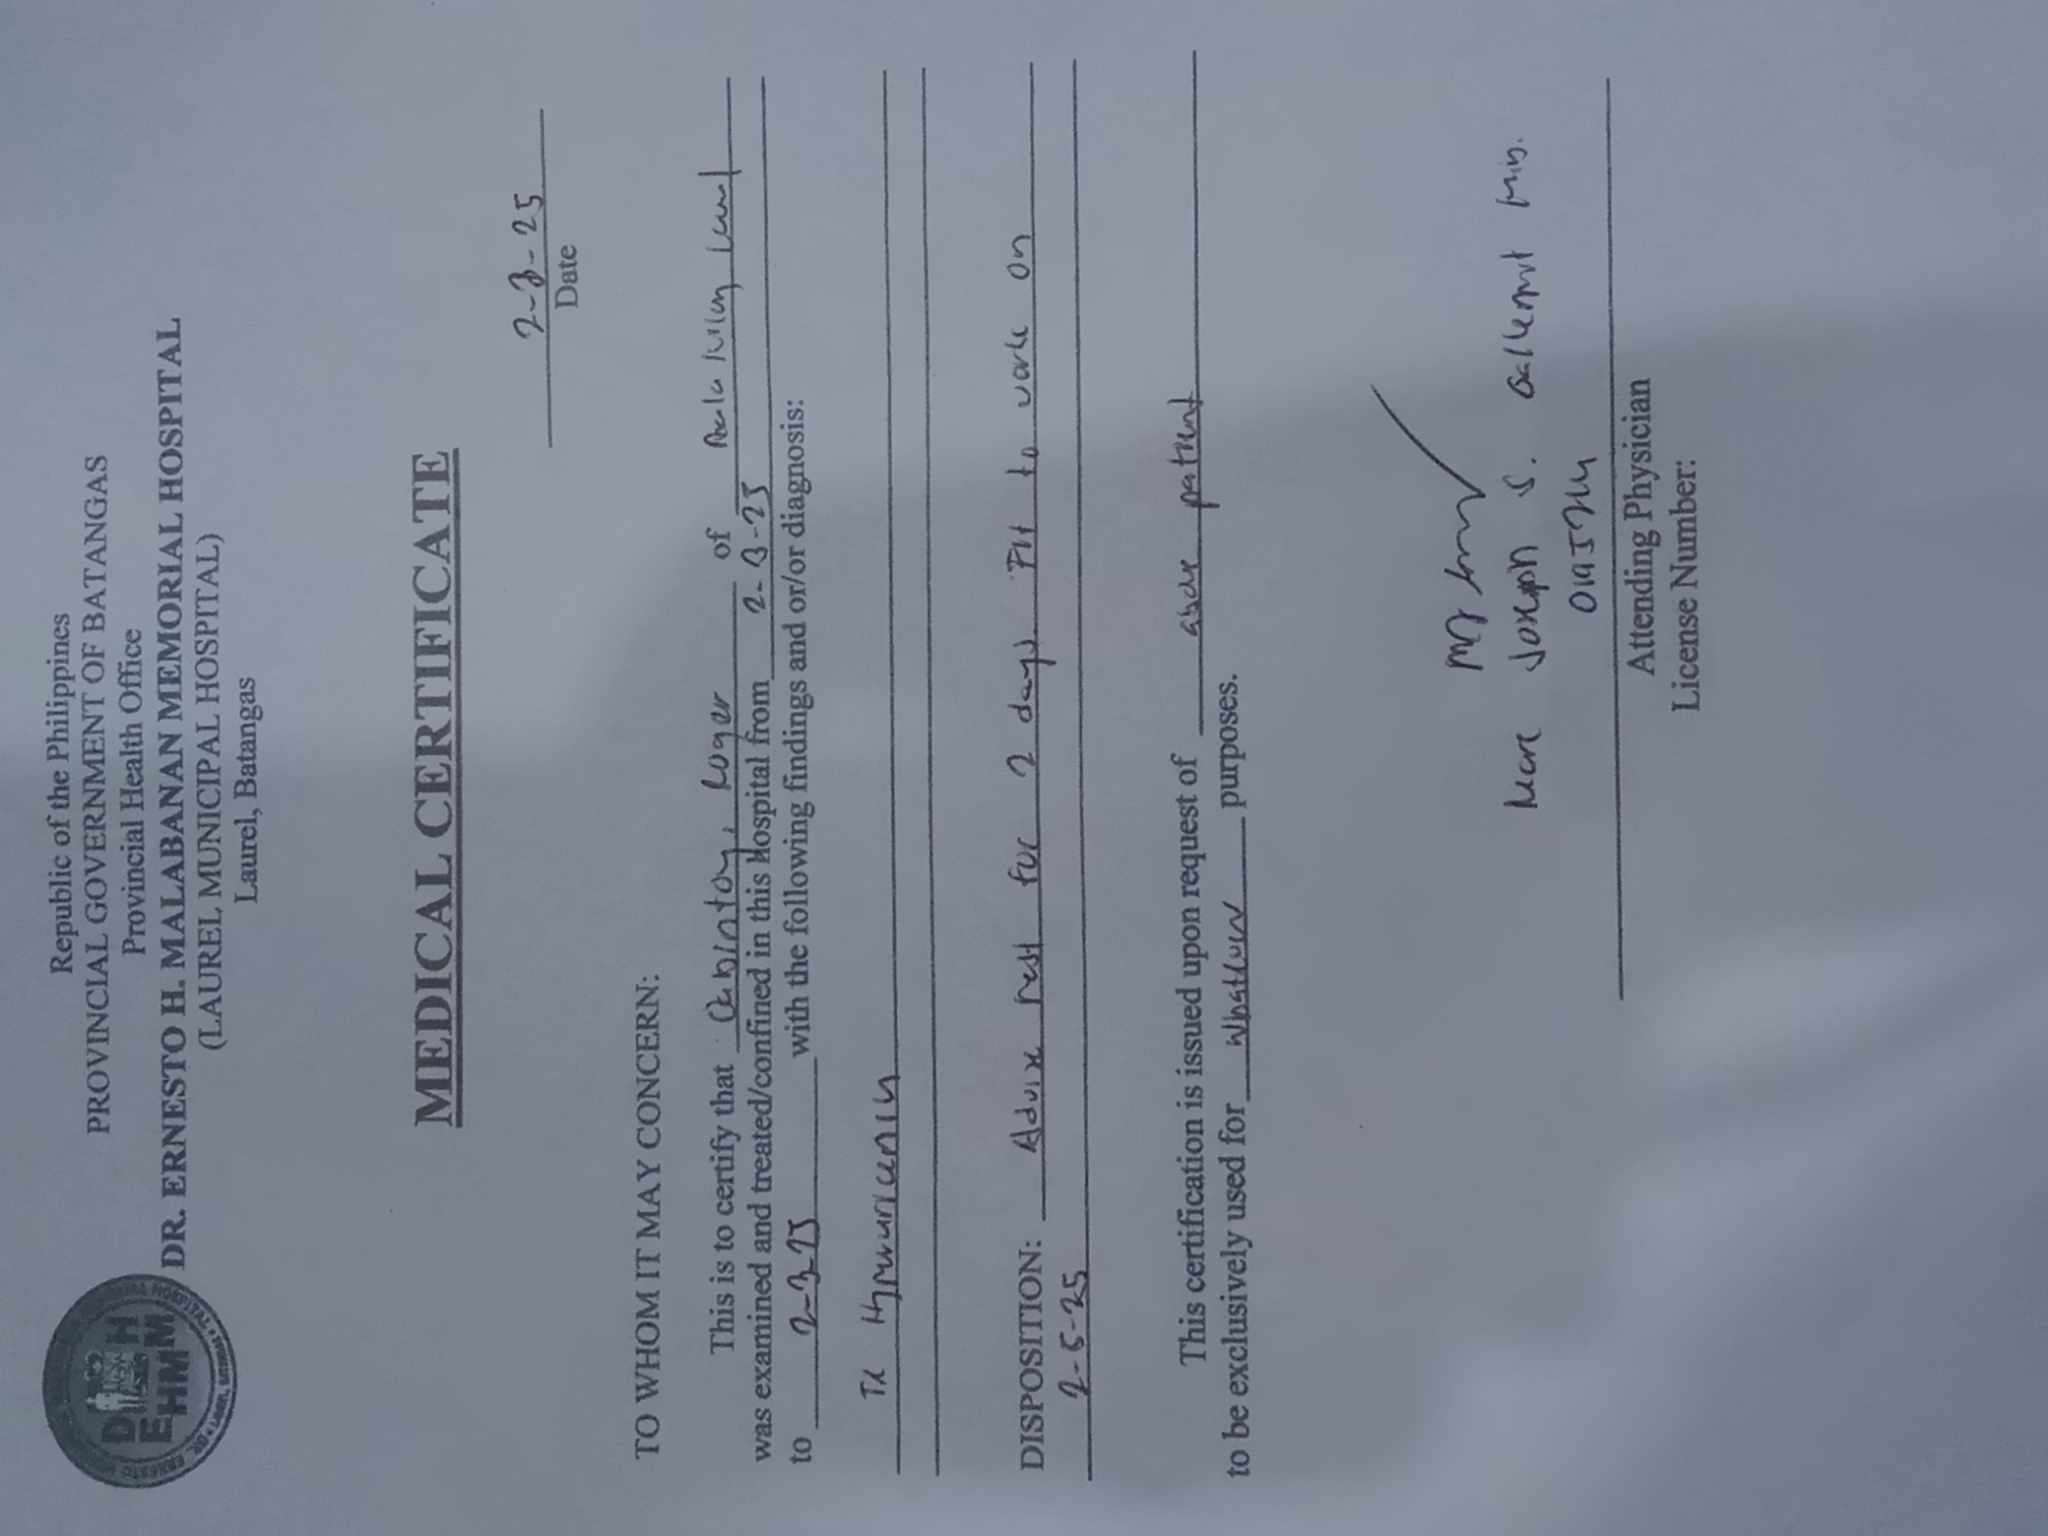 Republic of the Philippines
PROVINCIAL GOVERNMENT OF BATANGAS
Provincial Health Office
DR. ERNESTO H. MALABANAN MEMORIAL HOSPITAL
(LAUREL MUNICIPAL HOSPITAL)
Laurel, Batangas
D H
EHMM
MEDICAL CERTIFICATE
2-3-25
Date
TO WHOM IT MAY CONCERN:
This is to certify that Roger of
was examined and treated/confined in this Hospital from 2-3-25
to 2-3-25 with the following findings and or/or diagnosis:
DISPOSITION: Advise rest for 2 days Fit to work on
2-5-25
This certification is issued upon request of above patient
to be exclusively used for purposes.
Joseph S.
Attending Physician
License Number: